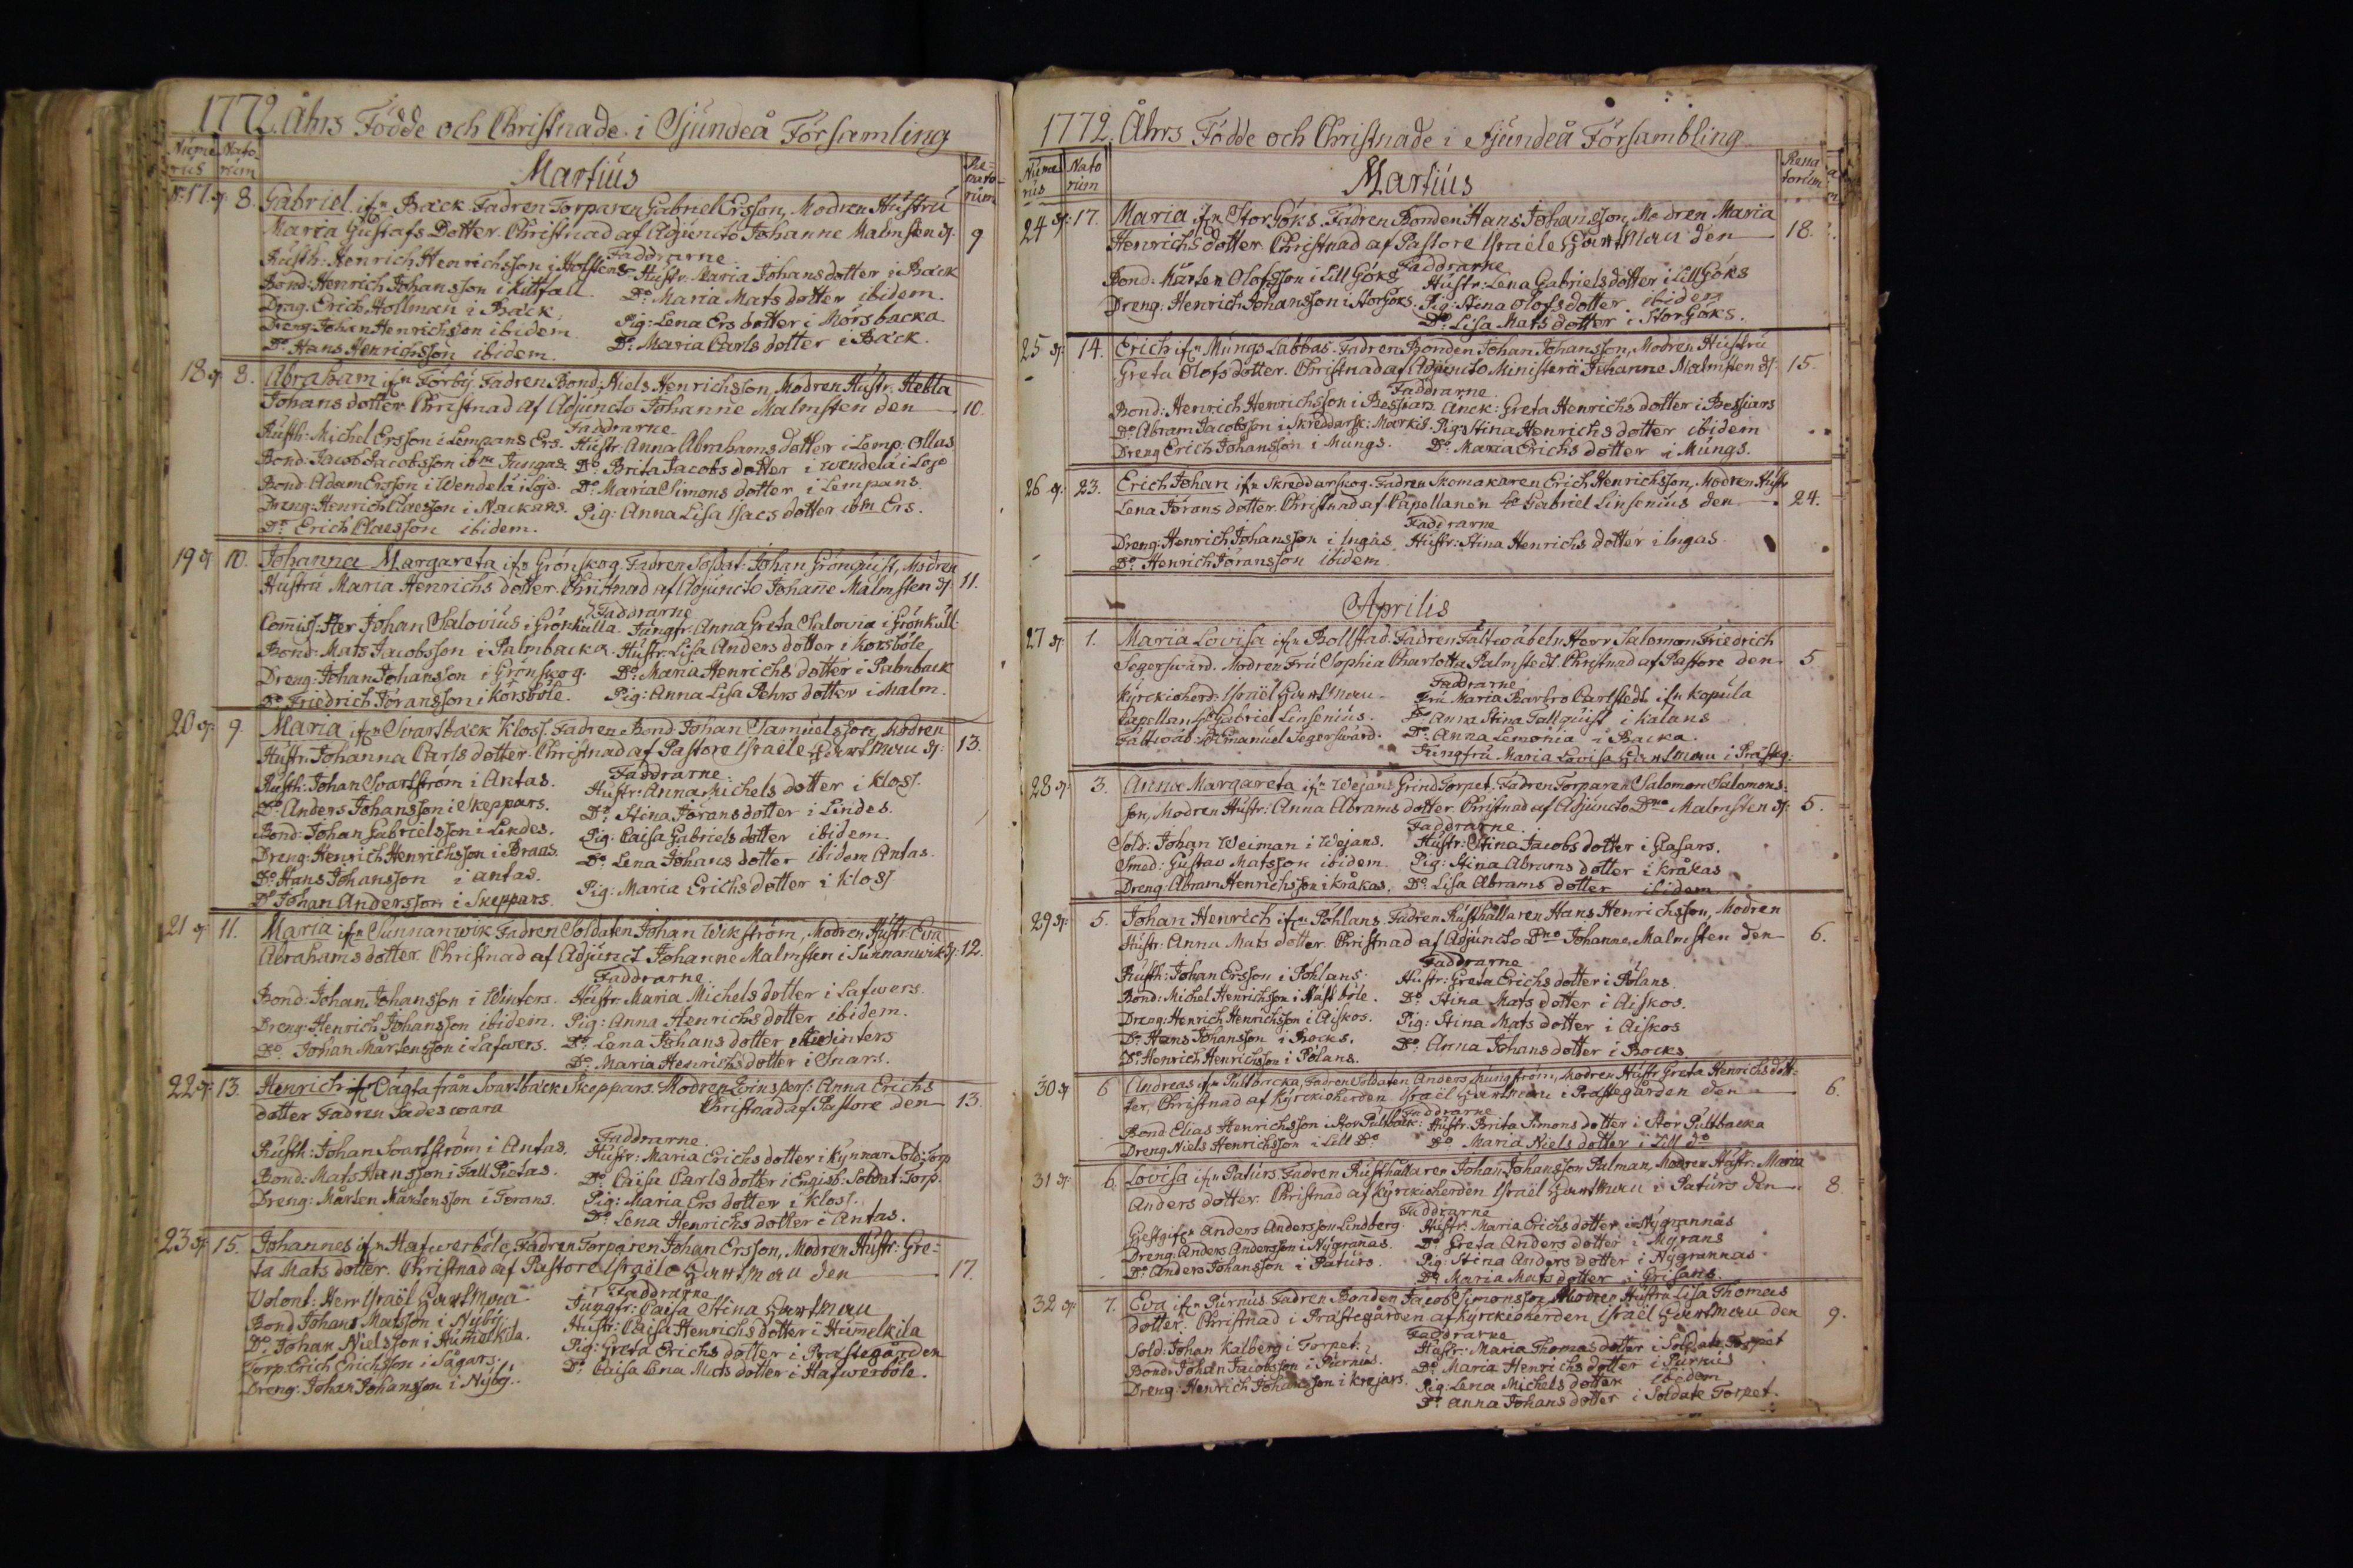 1772. Åhrs Födde och Christnade i Sjundeå Församling
Nume Nato- Re=
rus rum Martius nato-
rum
N:17 8. Gabriel ifrn Bäck. Fadren Torparen Gabriel Ersson, Modren Hustru
Maria Gustafs Dotter. Christnad af Adjuncto Johanne Malmsten d. 9
Faddrarne
Rusth: Henrich Henrichsson i Hoffens Hustr. Maria Johansdotter i Bäck
Bond: Henrich Johansson i Kittfall Do. Maria Mats dotter ibidem.
Drag. Erich Hollman i Bäck. Pig: Lena Ers dotter i Morsbacka
Dreng: Johan Henrichsson ibidem Do. Maria Carls dotter i Bäck.
Do. Hans Henrichsson ibidem.
18 8. Abraham ifrn Förby. Fadren Bond. Niels Henrichsson, Modren Hustr. Hebla
Johans dotter. Christnad af Adjuncto Johanne Malmsten den 10.
Faddrarne
Rusth: Michel Ersson i Lempans Ers. Hustr. Anna Abrahams dotter i Lemp: Ollas
Bond. Jacob Jacobsson ibm Jungas. Do. Brita Jacobs dotter i Wendelä i Lojo
Bond. Adam Ersson i Wendelä i Lojo. Do. Maria Simons dotter i Lempans.
Dreng: Henrich Claesson i Nackans. Pig: Anna Lisa Isacs dotter ibm Ers.
Do. Erich Claesson ibidem.
19 10. Johanna Margareta ifrn Grönskog. Fadren Soldat: Johan Grönquist, Modren
Hustru Maria Henrichs dotter. Christnad af Adjuncto Johanne Malmsten d. 11.
Faddrarne
Comiss: Her Johan Salovius i Grönkulla. Jungfr: Anna Greta Salovia i Grönkull.
Bond: Mats Jacobsson i Palmbacka. Hustr: Lisa Anders dotter i Korsböle
Dreng: Johan Johansson i Grönskog. Do. Maria Henrichs dotter i Palmback
Do. Friedrich Joransson i Korsböle. Pig: Anna Lisa Pehrs dotter i Malm.
20 9. Maria ifrn Svartbäck Kloss. Fadren Bond. Johan Samuelsson, Modren
Hustr: Johanna Carls dotter. Christnad af Pastore Israele Hartman d. 13.
Faddrarne.
Rusth: Johan Svartström i Antas. Hustr: Anna Michels dotter i Kloss.
Do. Anders Johansson i Skeppars. Do. Stina Jorans dotter i Lindes.
Bond: Johan Gabrielsson i Lindes. Pig: Caisa Gabriels dotter ibidem.
Dreng: Henrich Henrichsson i Braas. Do. Lena Johans dotter ibidem Antas.
Do. Hans Johansson i Antas. Pig: Maria Erichs dotter i Kloss
Do. Johan Andersson i Skeppars.
21 11. Maria ifrn Sunnanwik Fadren Soldaten Johan Wikström, Modren Hustr. Eva
Abrahams dotter. Christnad af Adjunct Johanne Malmsten i Sunnanwik d. 12.
Faddrarne
Bond: Johan Johansson i Winters. Hustr. Maria Michels dotter i Lafwers.
Dreng: Henrich Johansson ibidem. Pig: Anna Henrichs dotter ibidem.
Do. Johan Mårtensson i Lafwers. Do. Lena Johans dotter i Winters
Do. Maria Henrichs dotter i Snars.
22 13. Henrich Oägta från Svartbäck Skeppars. Modren Qvinspers: Anna Erichs
dotter Fadren Sades wara Christnad af Pastore den 13.
Faddrarne.
Rusth: Johan Svartström i Antas. Hustr: Maria Erichs dotter i Kynnar Sold: Torp
Bond: Mats Hansson i Fall Pietas. Do. Caisa Carls dotter i Engisb: Soldat: Torp.
Dreng: Mårten Mårtensson i Jorans. Pig: Maria Ers dotter i Kloss.
Do. Lena Henrichs dotter i Antas.
23 15. Johannes ifrn Hafwerböle, Fadren Torparen Johan Ersson, Modren Hustr: Gre=
ta Mats dotter. Christnad af Pastore Israele Hartman den 17.
Faddrarne
Volont: Herr Israël Hartman Jungfr: Caisa Stina Hartman
Bond Johan Matsson i Nyby. Hustr: Caisa Henrichs dotter i Humelkila
Do. Johan Nielsson i Humelkila. Pig: Greta Erichs dotter i Prästegården
Torp. Erich Erichsson i Sågars. Do. Caisa Lena Mats dotter i Hafwerböle.
Dreng: Johan Johansson i Nyby.
1772. Åhrs Födde och Christnade i Sjundeå Försambling
Nume Nato Rena
rus rum Martius torum
24 17. Maria ifrn Stor Göks. Fadren Bonden Hans Johansson, Modren Maria
Henrichs dotter. Christnad af Pastore Israele Hartman den 18.
Faddrarne
Bond: Mårten Olofsson i Lill Göks Hustr: Lena Gabriels dotter i Lill Göks
Dreng. Henrich Johansson i Stor Göks. Pig: Stina Olofs dotter ibidem
Do. Lisa Mats dotter i Stor Göks.
25 14. Erich ifrn Mungs Labbas. Fadren Bonden Johan Johansson, Modren Hustru
Greta Olofs dotter. Christnad af Adjuncto Ministerii Johanne Malmsten d. 15.
Faddrarne
Bond: Henrich Henrichsson i Bessiars. Anck: Greta Henrichs dotter i Bessiars
Do. Abram Jacobsson i Skreddarsk: Markis. Pig: Stina Henrichs dotter ibidem
Dreng Erich Johansson i Mungs. Do. Maria Erichs dotter i Mungs.
26 23. Erich Johan ifrn Skreddarskog. Fadren Skomakaren Erich Henrichsson, Modren Hustr
Lena Jorans dotter. Christnad af Capellanen Gabriel Linsenius den 24.
Faddrarne
Dreng: Henrich Johansson i Ingas Hustr: Stina Henrichs dotter i Ingas.
Do. Henrich Joransson ibidem
Aprilis
27 1. Maria Lovisa ifrn Bollstad. Fadren Fältwäbeln Herr Salomon Friedrich
Segerswärd. Modren Fru Sophia Charlotta Palmstedt. Christnad af Pastore den 5.
Faddrarne
Kyrckioherd: Israël Hartman Fru Maria Barbro Carlstedt ifrn Kopula
Capellan Gabriel Linsenius. Do Anna Stina Tallquist i Kalans
Fältwäb: Emanuel Segerswärd. Do. Anna Lemonia i Backa.
Jungfru Maria Lovisa Hartman i Prästg:
28 3. Anna Margareta ifrn Wejans Grind Torpet. Fadren Torparen Salomon Salomons=
son, Modren Hustr: Anna Abrams dotter. Christnad af Adjuncto Dno Malmsten d. 5.
Faddrarne.
Sold: Johan Weiman i Wejans. Hustr: Stina Jacobs dotter i Glasars.
Smed: Gustav Matsson ibidem. Pig: Stina Abrams dotter i Kråkas
Dreng: Abram Henrichsson i Kråkas. Do. Lisa Abrams dotter ibidem
29 5. Johan Henrich ifrn Pohlans. Fadren Rusthållaren Hans Henrichsson, Modren
Hustr: Anna Mats dotter. Christnad af Adjuncto Dno Johanne Malmsten den 6.
Faddrarne
Rusth: Johan Ersson i Pohlans. Hustr: Greta Erichs dotter i Polans.
Bond: Michel Henrichsson i Näst böle. Do. Stina Mats dotter i Aiskos.
Dreng: Henrich Henrichsson i Aiskos. Pig: Stina Mats dotter i Aiskos
Do. Hans Johansson i Bocks. Do. Anna Johans dotter i Bocks
Do. Henrich Henrichsson i Polans.
30 6 Andreas ifrn Pultbacka, Fadren Soldaten Anders Mungström, Modren Hustr Greta Henrichs dott=
ter, Christnad af Kyrckioherden Israël Hartman i Prästegården den 6.
Faddrarne
Bond Elias Henrichsson i Stor Pultback: Hustr: Brita Simons dotter i Stor Pultbacka
Dreng Niels Henrichsson i Lill Do Do Maria Niels dotter i Lill do
31 6. Lovisa ifrn Paturs. Fadren Rusthållaren Johan Johansson Palman, Modren Hustr: Maria
Anders dotter. Christnad af Kyrckioherden Israël Hartman i Paturs den 8.
Faddrarne
Gestgifr Anders Andersson Lindberg. Hustr: Maria Erichs dotter i Nygrannas
Dreng. Anders Andersson i Nygrannas. Do. Greta Anders dotter i Myrans
Do. Anders Johansson i Paturs. Pig: Stina Anders dotter i Nygrannas
Do. Maria Mats dotter i Grisans.
32 7. Eva ifrn Purnus. Fadren Bonden Jacob Simonsson, Modren Hustru Lisa Thomas
dotter. Christnad i Prästegården af Kyrckioherden Israël Hartman den 9.
Faddrarne
Sold: Johan Kalberg i Torpet. Hustr: Maria Thomas dotter i Soldate Torpet
Bond: Johan Jacobsson i Purnus. Do. Maria Henrichs dotter i Purnus
Dreng: Henrich Johansson i Krejars. Pig: Lena Michels dotter ibidem
Do. Anna Johans dotter i Soldate Torpet.